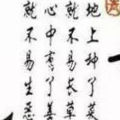 地上种了菜
就不易長草
心中有了善
就不易生惡